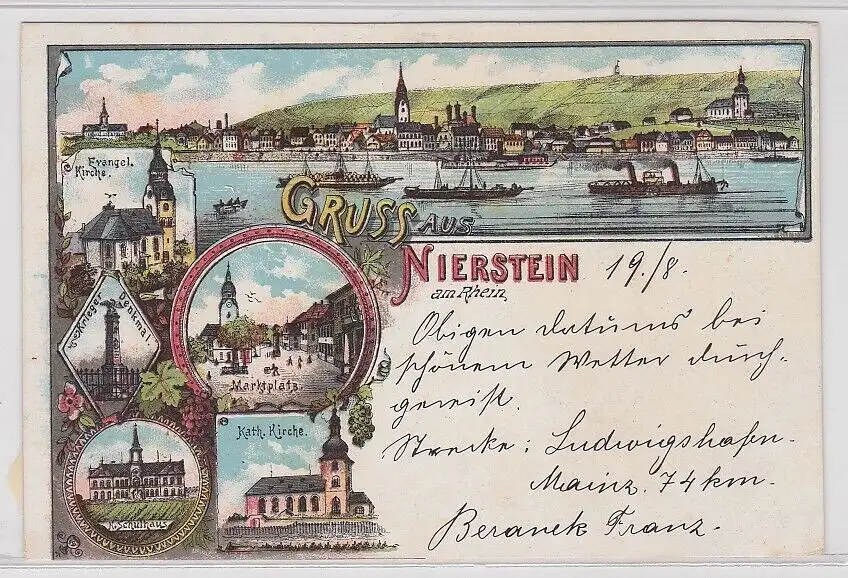 Evangel.
Kirche.
GRUSS AUS
NIERSTEIN
am Rhein,
19./8.
Krieger Denkmal.
Marktplatz.
Kath. Kirche.
Schulhaus
Obigen datums bei
schönem Wetter durch-
gereist.
Strecke: Ludwigshafen-
Mainz. 74 km.
Beranek Franz.